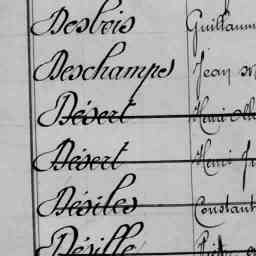 Desbois Guillaum
Deschamps Jean
Désert Henri
Désert Henri
Désiles Constant
Déville